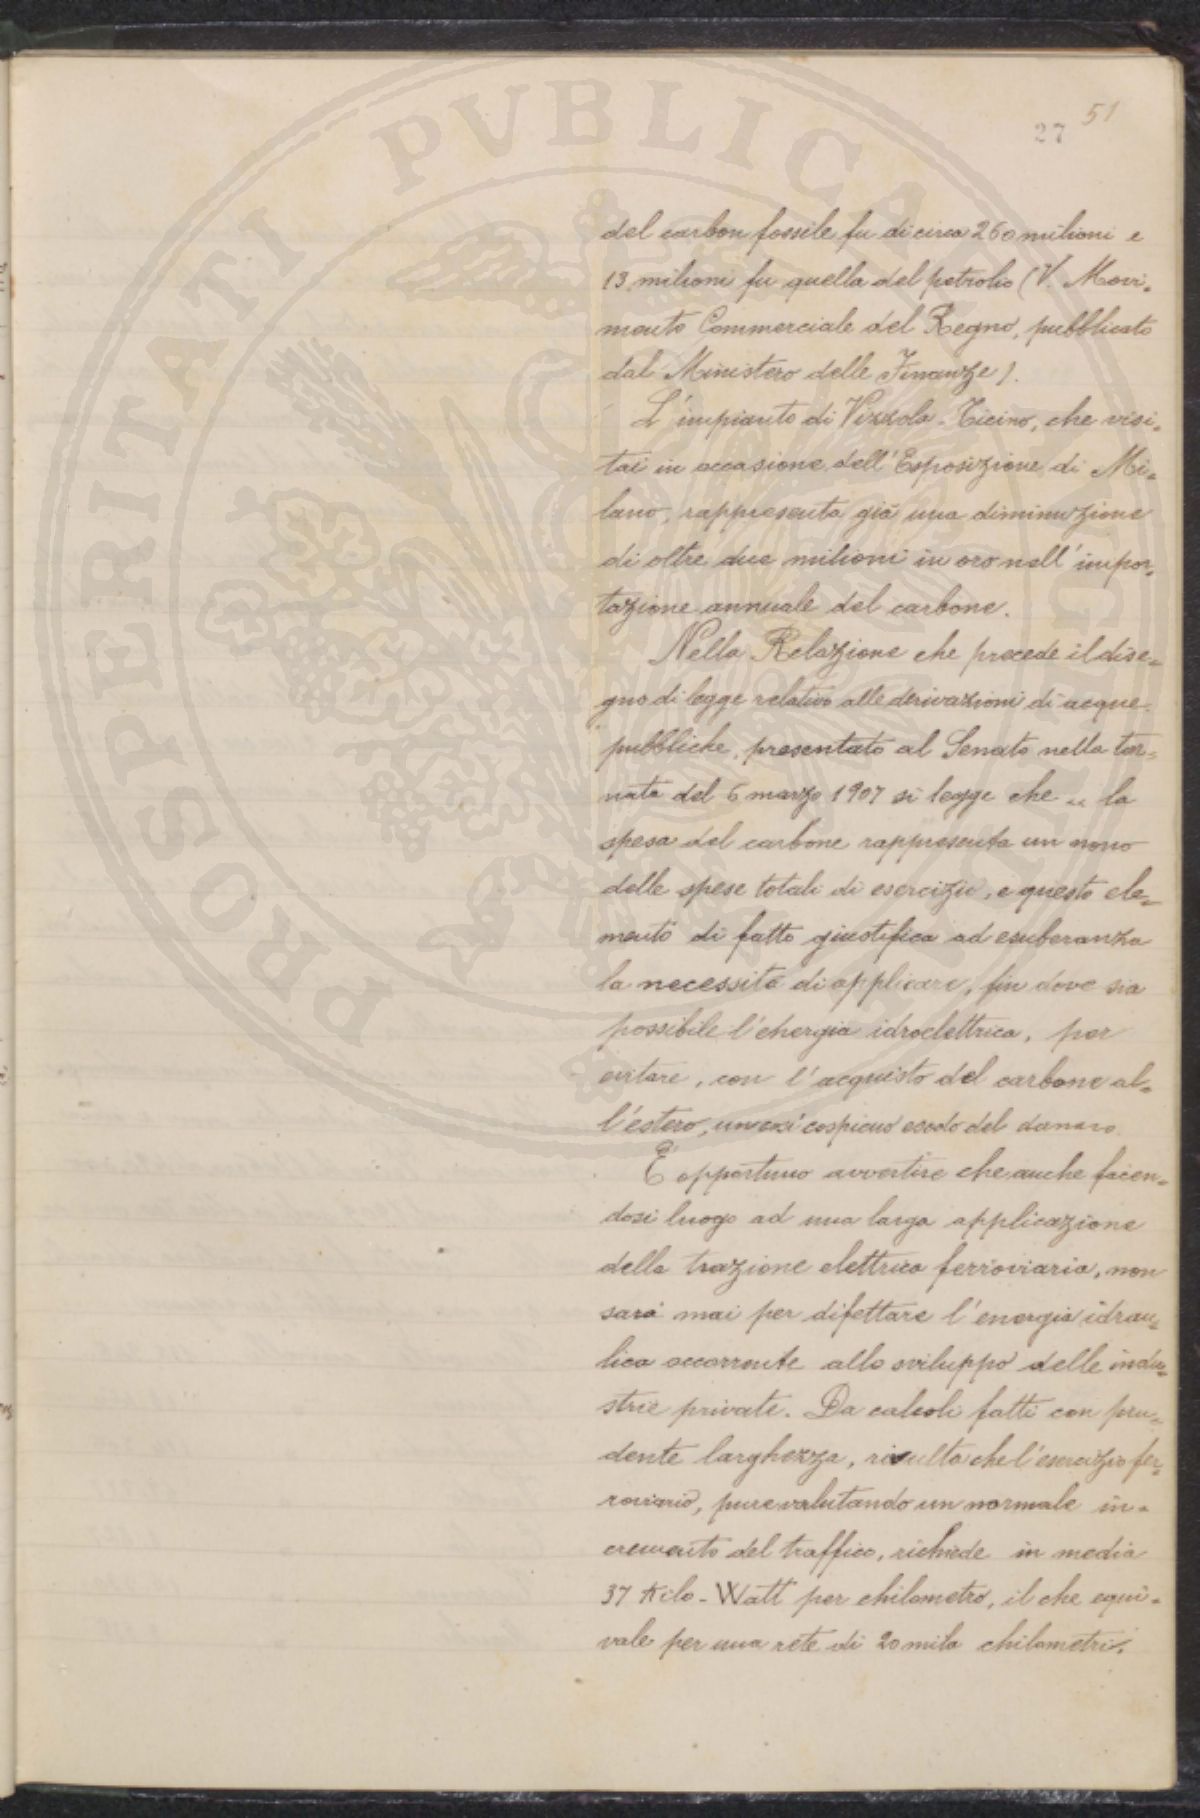 PROSPERITATI PVBLICAE
51
27
del carbon fossile fu di circa 260 milioni e
13 milioni fu quella del petrolio (V. Movi=
mento Commerciale del Regno, pubblicato
dal Ministero delle Finanze).
L'impianto di Vizzola-Ticino, che visi=
tai in occasione dell'Esposizione di Mi=
lano, rappresenta già una diminuzione
di oltre due milioni in oro nell'impor=
tazione annuale del carbone.
Nella Relazione che precede il dise=
gno di legge relativo alle derivazioni di acque
pubbliche, presentato al Senato nella tor=
nata del 6 marzo 1907 si legge che „ la
spesa del carbone rappresenta un nono
delle spese totali di esercizio, e questo ele=
mento di fatto giustifica ad esuberanza
la necessità di applicare, fin dove sia
possibile l'energia idroelettrica, per
evitare, con l'acquisto del carbone al=
l'estero, un così cospicuo esodo del danaro.
È opportuno avvertire che anche facen=
dosi luogo ad una larga applicazione
della trazione elettrica ferroviaria, non
sarà mai per difettare l'energia idrau=
lica occorrente allo sviluppo delle indu=
strie private. Da calcoli fatti con pru=
dente larghezza, risulta che l'esercizio fer=
roviario, pure valutando un normale in=
cremento del traffico, richiede in media
37 Kilo-Watt per chilometro, il che equi=
vale per una rete di 20 mila chilometri,